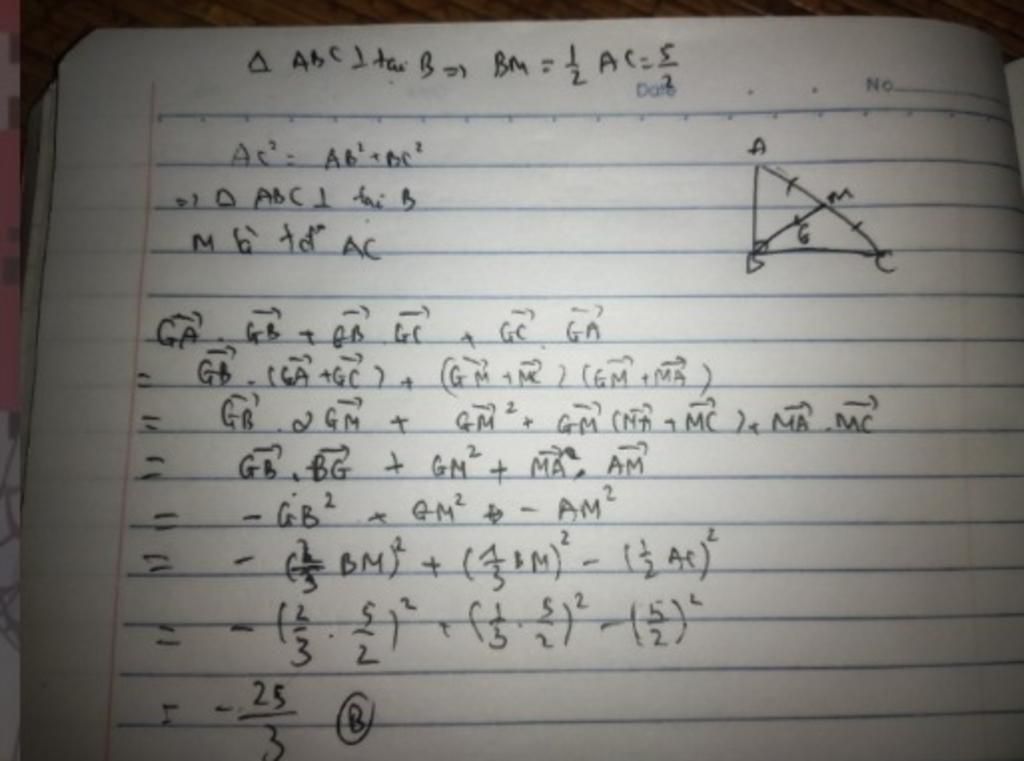 Δ ABC ⊥ tại B => BM = 1/2 AC = 5/2
Date No
AC² = AB² + BC²
=> Δ ABC ⊥ tại B
M là tđ AC
A
M
G
B C
GA→ . GB→ + GB→ . GC→ + GC→ . GA→
= GB→ . (GA→ + GC→) + (GM→ + MC→) (GM→ + MA→)
= GB→ . 2 GM→ + GM→² + GM→ (MA→ + MC→) + MA→ . MC→
= GB→ . BG→ + GM² + MA→ . AM→
= - GB² + GM² - AM²
= - (2/3 BM)² + (1/3 BM)² - (1/2 AC)²
= - (2/3 . 5/2)² + (1/3 . 5/2)² - (5/2)²
= - 25/3 (B)